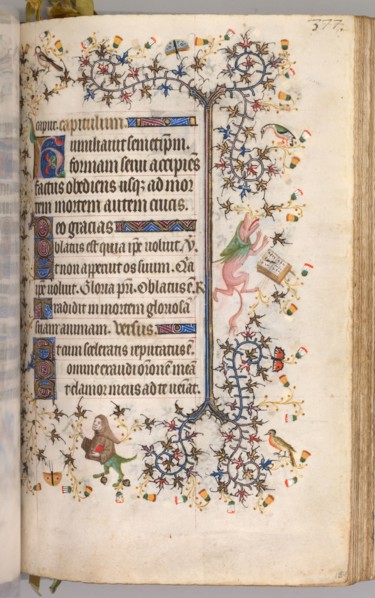 377.
caput. capitulum.
Humiliavit semetipm.
formam servi accipiēs
factus obediens usq; ad mor
tem mortem autem crucis.
Deo gracias
Oblatus est quia ipe voluit. V.
Et non aperuit os suum. Qia
ipe voluit. Gloria pri. Oblatus ē. R
Tradidit in mortem gloriosa
suam animam. Versus.
Et cum sceleratis reputatus ē.
Domine exaudi orōnē meā
Et clamor meus ad te veiāt.